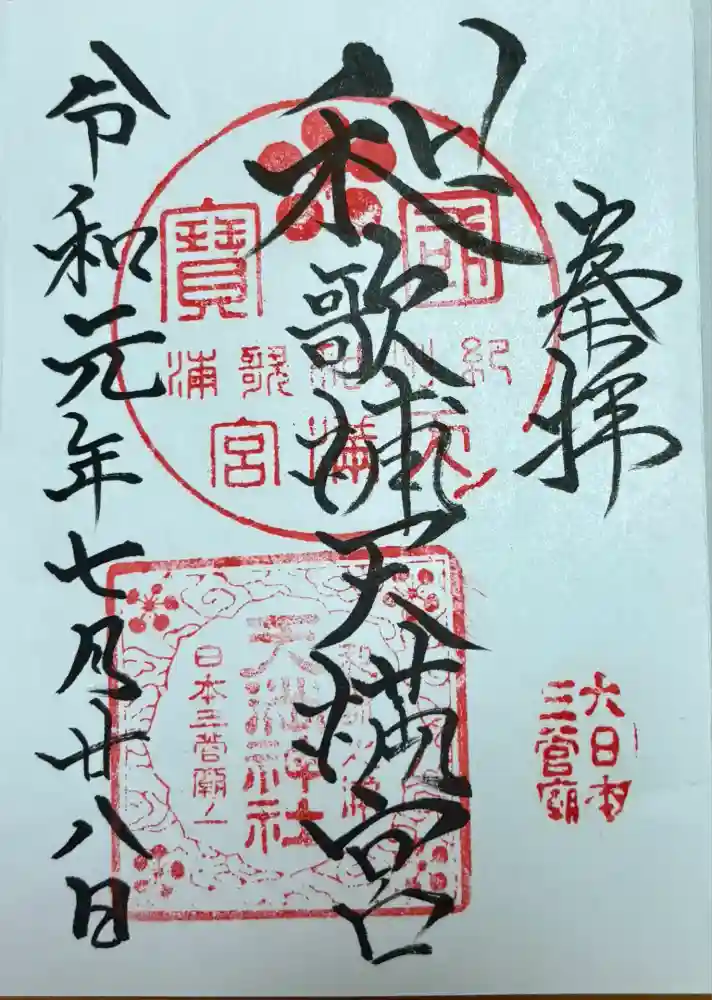 奉拝
和歌浦天満宮
令和元年七月廿八日
國寶
紀州和歌浦
天満宮
和歌浦
天満神社
日本三菅廟ノ一
大日本
三菅廟